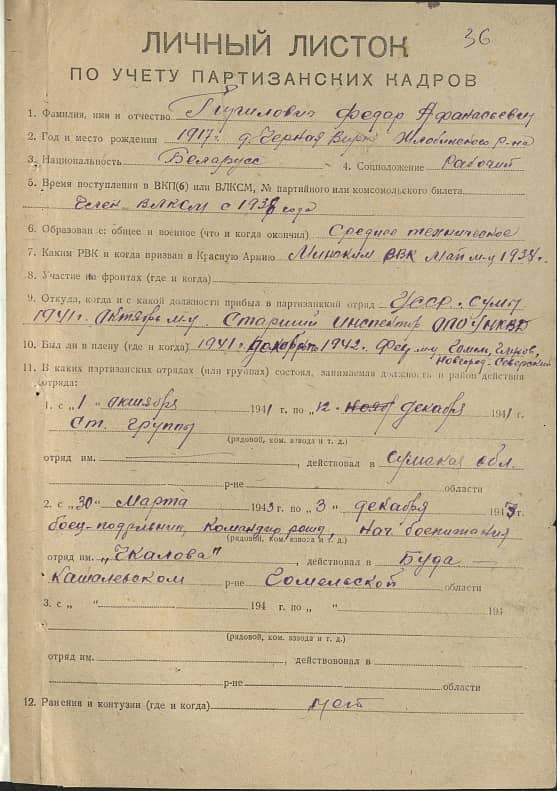 36
ЛИЧНЫЙ ЛИСТОК
ПО УЧЕТУ ПАРТИЗАНСКИХ КАДРОВ
1. Фамилия, имя и отчество Федар Афанасьевич
2. Год и место рождения 1917г. д. Черная Вирня Жлобинского р-на
3. Национальность Беларусс 4. Соцположение Рабочий
5. Время поступления в ВКП(б) или ВЛКСМ, № партийного или комсомольского билета
Член ВЛКСМ с 1938 года
6. Образование: общее и военное (что и когда окончил) Среднее техническое
7. Каким РВК и когда призван в Красную Армию Минским РВК Май м-ц 1938г.
8. Участие на фронтах (где и когда)
9. Откуда, когда и с какой должности прибыл в партизанский отряд УССР г. Сумы
1941г. Октябрь м-ц. Старший инспектор ОПО УНКВД
10. Был ли в плену (где и когда) 1941г. Декабрь 1942. Фев. м-ц Гомель, Глухов,
Новгород-Северский
11. В каких партизанских отрядах (или группах) состоял, занимаемая должность и район действия
отряда:
1. с „1" октября 1941 г. по „12" декабря 1941 г.
Ст. группы
(рядовой, ком. взвода и т. д.)
отряд им. , действовал в Сумская обл.
р-не области
2. с „30" Марта 1943 г. по „3" декабря 1943 г.
боец-подрывник, Командир роты, Нач. боепитания
(рядовой, ком. взвода и т. д.)
отряд им. „Чкалова" , действовал в Буда —
Кашалевском р-не Гомельской области
3. с „ " 194 г. по „ " 194
(рядовой, ком. взвода и т. д.)
отряд им. , действововал в
р-не области
12. Ранения и контузии (где и когда) нет